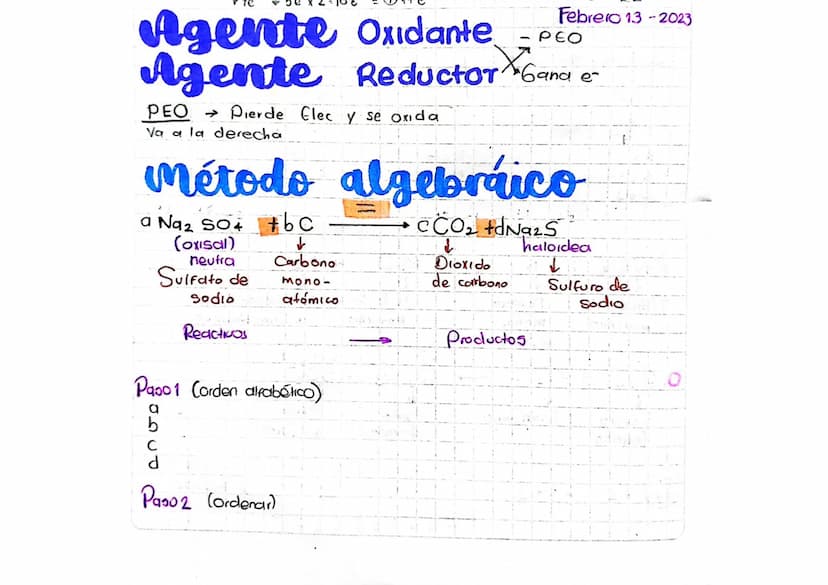 Febrero 13 - 2023
Agente Oxidante - PEO
Agente Reductor Gana e-
PEO → Pierde Elec y se oxida
Va a la derecha
Método algebráico
=
a Na₂ SO₄ + b C → c CO₂ + d Na₂S
(oxisal) ↓ ↓ haloidea
neutra Carbono Dioxido ↓
Sulfato de mono- de carbono Sulfuro de
sodio atómico sodio
Reactivos → Productos
Paso 1 (orden alfabético)
a
b
c
d
Paso 2 (ordenar)